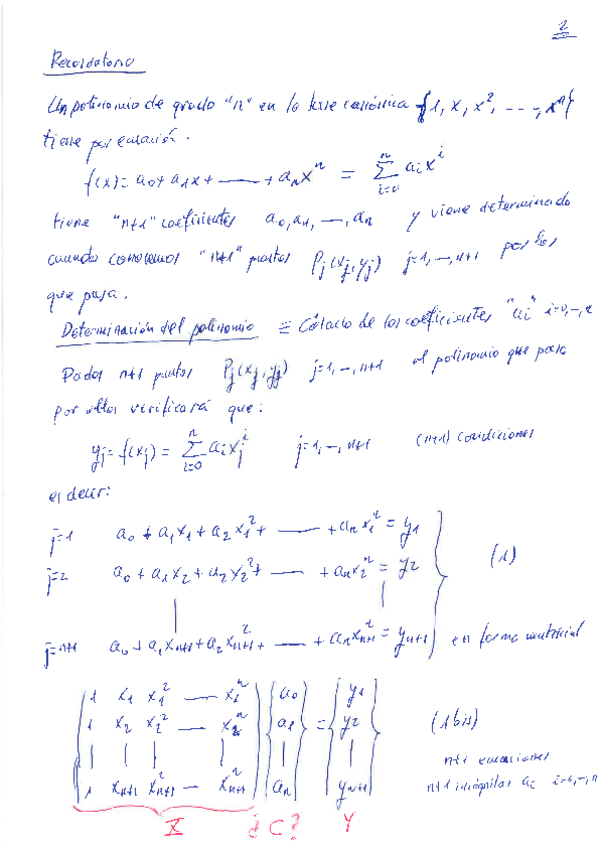 2
Recordatorio
Un polinomio de grado "n" en la base canónica {1, x, x², ---, xⁿ}
tiene por ecuación.
f(x) = a₀ + a₁x + —— + aₙxⁿ = Σ_{i=0}^{n} aᵢxⁱ
tiene "n+1" coeficientes a₀, a₁, —, aₙ y viene determinado
cuando conocemos "n+1" puntos Pⱼ(xⱼ, yⱼ) j=1, –, n+1 por los
que pasa.
Determinación del polinomio ≡ Cálculo de los coeficientes "aᵢ" i=0, –, n
Dados n+1 puntos Pⱼ(xⱼ, yⱼ) j=1, –, n+1 el polinomio que pasa
por ellos verificará que:
yⱼ = f(xⱼ) = Σ_{i=0}^{n} aᵢxⱼⁱ j=1, –, n+1 (n+1) condiciones
es decir:
j=1 a₀ + a₁x₁ + a₂x₁² + —— + aₙx₁ⁿ = y₁
j=2 a₀ + a₁x₂ + a₂x₂² + —— + aₙx₂ⁿ = y₂ (1)
j=n+1 a₀ + a₁xₙ₊₁ + a₂xₙ₊₁² + —— + aₙxₙ₊₁ⁿ = yₙ₊₁ en forma matricial
1 x₁ x₁² — x₁ⁿ a₀ y₁
1 x₂ x₂² — x₂ⁿ a₁ = y₂ (1bis)
n+1 ecuaciones
1 xₙ₊₁ xₙ₊₁² — xₙ₊₁ⁿ aₙ yₙ₊₁ n+1 incógnitas aᵢ i=0, –, n
X ¿C? Y